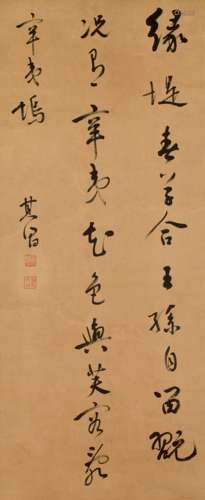 綠堤春草合王孫自留翫
况有辛夷花色與芙蓉亂
辛夷塢
其昌